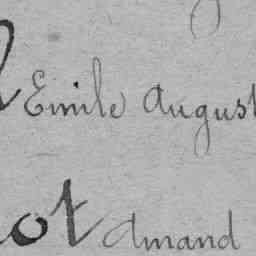 Emile August
ot Amand